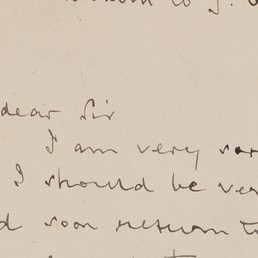 to J.
dear Sir
I am very sor
I should be ver
d soon return t